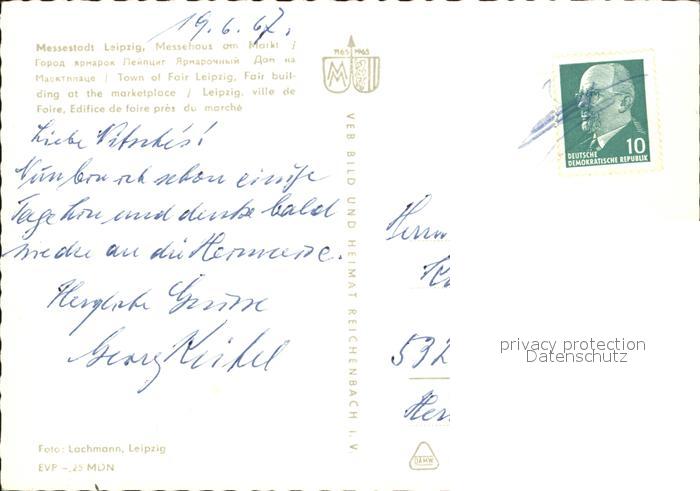 19. 6. 67.
Messestadt Leipzig, Messehaus am Markt /
Город ярмарок Лейпциг Ярмарочный Дом на
Марктплаце / Town of Fair Leipzig, Fair buil-
ding at the marketplace / Leipzig, ville de
Foire, Edifice de foire près du marché
1165 1965
MM
Liebe Nitsche's!
Nun bin ich schon einige
Tage hier und denke bald
wieder an die Heimreise.
Herzliche Grüsse
Georg
VEB BILD UND HEIMAT REICHENBACH i. V
10
DEUTSCHE
DEMOKRATISCHE REPUBLIK
Herrn
532
privacy protection
Datenschutz
Foto: Lachmann, Leipzig
EVP -,25 MDN
DAMW